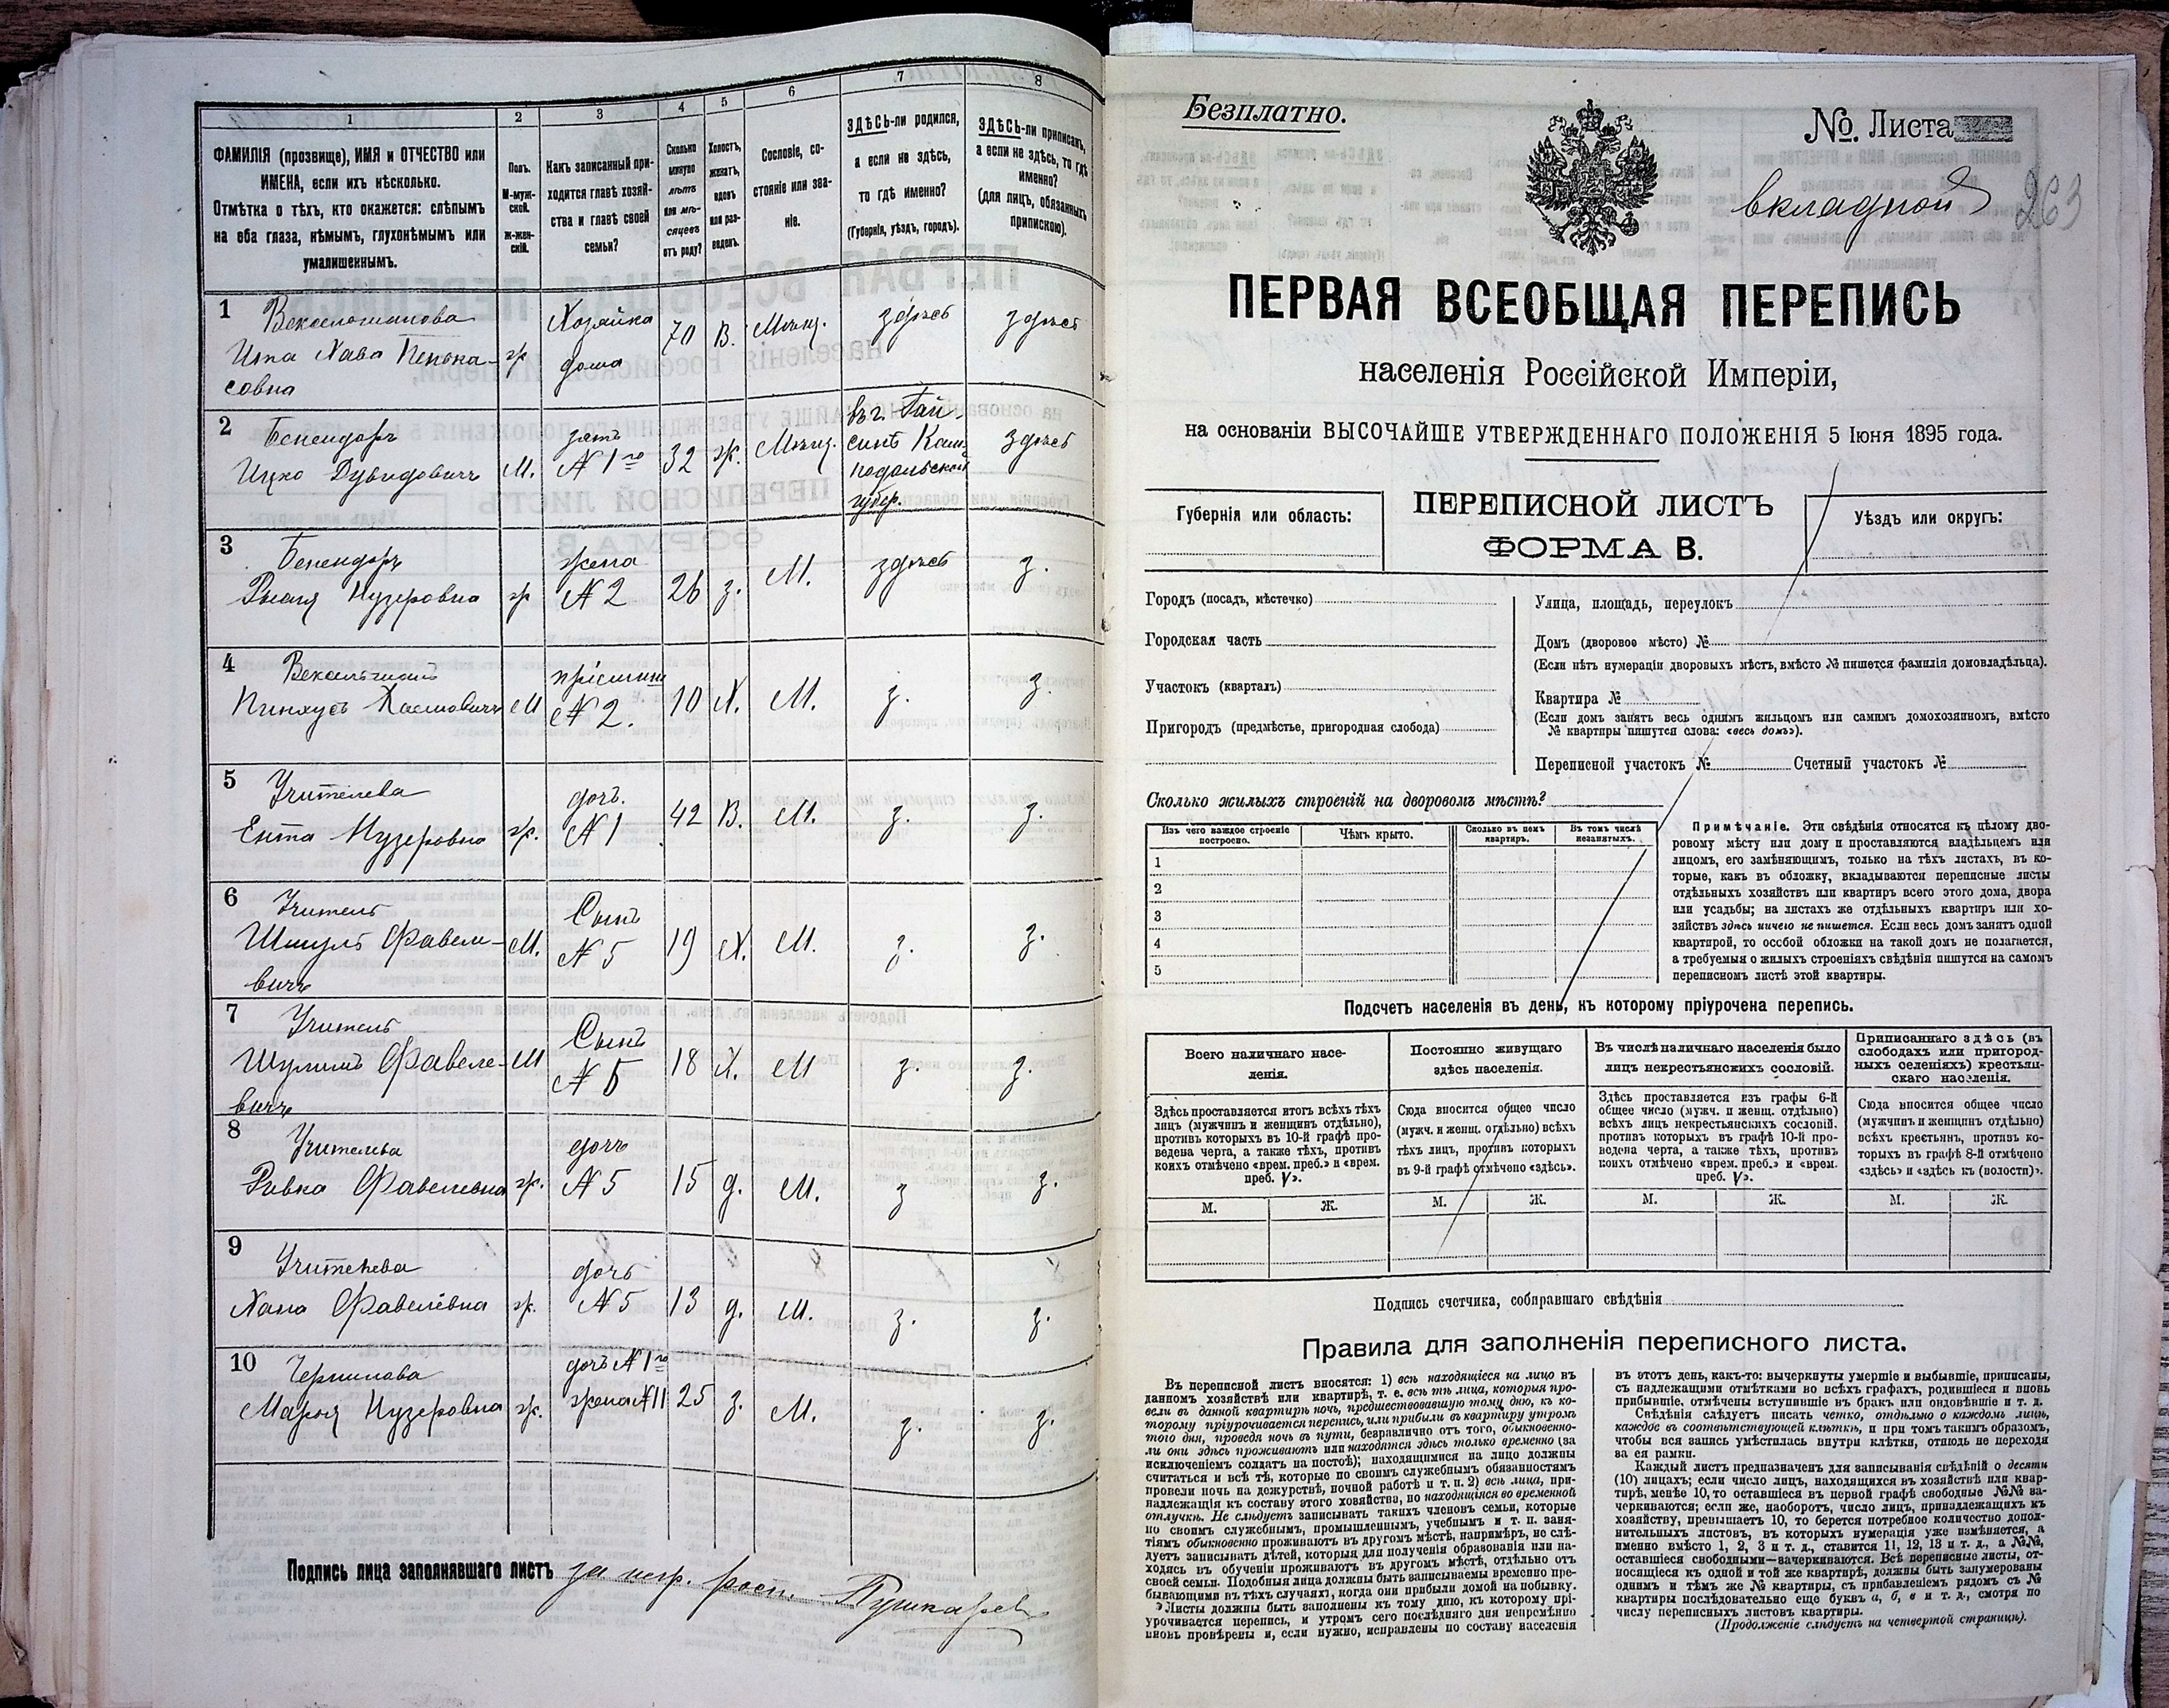 1
2
3
4
5
6
7
8
ФАМИЛІЯ (прозвище), ИМЯ и ОТЧЕСТВО или
ИМЕНА, если ихъ нѣсколько.
Отмѣтка о тѣхъ, кто окажется: слѣпымъ
на оба глаза, нѣмымъ, глухонѣмымъ или
умалишеннымъ.
Полъ.
М-муж-
ской.
Ж-жен-
скій.
Какъ записанный при-
ходится главѣ хозяй-
ства и главѣ своей
семьи?
Сколько
минуло
лѣтъ
или мѣ-
сяцевъ
отъ роду?
Холостъ,
женатъ,
вдовъ
или раз-
веденъ.
Сословіе, со-
стояніе или зва-
ніе.
ЗДѢСЬ-ли родился,
а если не здѣсь,
то гдѣ именно?
(Губернія, уѣздъ, городъ).
ЗДѢСЬ-ли приписанъ,
а если не здѣсь, то гдѣ
именно?
(для лицъ, обязанныхъ
припискою).
1
Хозяйка
дома
70 В. Мѣщ. здѣсь здѣсь
ж
совна
2 Бенендоръ
Ицко Дувидовичъ М.
зять
№ 1го
32 ж. Мѣщ.
въ г. Гай-
синѣ Кам.
подольской
губер.
здѣсь
3 Бенендоръ
Нузеровна ж
жена
№ 2
26 з. М. здѣсь з.
4
Пинхусъ М
№ 2.
10 Х. М. з. з.
5 Учителева
Ента Нузеровна ж.
дочь.
№ 1
42 В. М. з. з.
6 Учитель
Шмуль Фавеле-
вичъ
М.
Сынъ
№ 5
19 Х. М. з. з.
7 Учитель
Шулимъ Фавеле-
вичъ
М
Сынъ
№ 5
18 Х. М з. з.
8 Учителева
Ривка Фавелевна ж.
дочь
№ 5
15 д. М. з з.
9 Учителева
Хана Фавелевна ж.
дочь
№ 5
13 д. М. з. з.
10
Марья Нузеровна ж.
дочь № 1го
жена № 11
25 з. М. з. з.
Подпись лица заполнявшаго листъ за негр. росп. Пушкаревъ
Безплатно.
№ Листа
вкладной 263
ПЕРВАЯ ВСЕОБЩАЯ ПЕРЕПИСЬ
населенія Россійской Имперіи,
на основаніи ВЫСОЧАЙШЕ УТВЕРЖДЕННАГО ПОЛОЖЕНІЯ 5 Іюня 1895 года.
Губернія или область:
ПЕРЕПИСНОЙ ЛИСТЪ
ФОРМА В.
Уѣздъ или округъ:
Городъ (посадъ, мѣстечко)
Городская часть
Участокъ (кварталъ)
Пригородъ (предмѣстье, пригородная слобода)
Улица, площадь, переулокъ
Домъ (дворовое мѣсто) №
(Если нѣтъ нумераціи дворовыхъ мѣстъ, вмѣсто № пишется фамилія домовладѣльца).
Квартира №
(Если домъ занятъ весь однимъ жильцомъ или самимъ домохозяиномъ, вмѣсто
№ квартиры пишутся слова: «весь домъ»).
Переписной участокъ № Счетный участокъ №
Сколько жилыхъ строеній на дворовомъ мѣстѣ?
Изъ чего каждое строеніе
построено.
Чѣмъ крыто.
Сколько въ немъ
квартиръ.
Въ томъ числѣ
незанятыхъ.
1
2
3
4
5
Примѣчаніе. Эти свѣдѣнія относятся къ цѣлому дво-
ровому мѣсту или дому и проставляются владѣльцемъ или
лицомъ, его замѣняющимъ, только на тѣхъ листахъ, въ ко-
торые, какъ въ обложку, вкладываются переписные листы
отдѣльныхъ хозяйствъ или квартиръ всего этого дома, двора
или усадьбы; на листахъ же отдѣльныхъ квартиръ или хо-
зяйствъ здѣсь ничего не пишется. Если весь домъ занятъ одной
квартирой, то особой обложки на такой домъ не полагается,
а требуемыя о жилыхъ строеніяхъ свѣдѣнія пишутся на самомъ
переписномъ листѣ этой квартиры.
Подсчетъ населенія въ день, къ которому пріурочена перепись.
Всего наличнаго насе-
ленія.
Постоянно живущаго
здѣсь населенія.
Въ числѣ наличнаго населенія было
лицъ некрестьянскихъ сословій.
Приписаннаго здѣсь (въ
слободахъ или пригород-
ныхъ селеніяхъ) крестьян-
скаго населенія.
Здѣсь проставляется итогъ всѣхъ тѣхъ
лицъ (мужчинъ и женщинъ отдѣльно),
противъ которыхъ въ 10-й графѣ про-
ведена черта, а также тѣхъ, противъ
коихъ отмѣчено «врем. преб.» и «врем.
преб. V».
Сюда вносится общее число
(мужч. и женщ. отдѣльно) всѣхъ
тѣхъ лицъ, противъ которыхъ
въ 9-й графѣ отмѣчено «здѣсь».
Здѣсь проставляется изъ графы 6-й
общее число (мужч. и женщ. отдѣльно)
всѣхъ лицъ некрестьянскихъ сословій,
противъ которыхъ въ графѣ 10-й про-
ведена черта, а также тѣхъ, противъ
коихъ отмѣчено «врем. преб.» и «врем.
преб. V».
Сюда вносится общее число
(мужчинъ и женщинъ отдѣльно)
всѣхъ крестьянъ, противъ ко-
торыхъ въ графѣ 8-й отмѣчено
«здѣсь» и «здѣсь къ (волости)».
М. Ж. М. Ж. М. Ж. М. Ж.
Подпись счетчика, собиравшаго свѣдѣнія
Правила для заполненія переписного листа.
Въ переписной листъ вносятся: 1) всѣ находящіеся на лицо въ
данномъ хозяйствѣ или квартирѣ, т. е. всѣ тѣ лица, которыя про-
вели въ данной квартирѣ ночь, предшествовавшую тому дню, къ ко-
торому пріурочивается перепись, или прибыли въ квартиру утромъ
того дня, проведя ночь въ пути, безразлично отъ того, обыкновенно-
ли они здѣсь проживаютъ или находятся здѣсь только временно (за
исключеніемъ солдатъ на постоѣ); находящимися на лицо должны
считаться и всѣ тѣ, которые по своимъ служебнымъ обязанностямъ
провели ночь на дежурствѣ, ночной работѣ и т. п. 2) всѣ лица, при-
надлежащія къ составу этого хозяйства, но находящіяся во временной
отлучкѣ. Не слѣдуетъ записывать такихъ членовъ семьи, которые
по своимъ служебнымъ, промышленнымъ, учебнымъ и т. п. заня-
тіямъ обыкновенно проживаютъ въ другомъ мѣстѣ, напримѣръ, не слѣ-
дуетъ записывать дѣтей, которыя для полученія образованія или на-
ходясь въ обученіи проживаютъ въ другомъ мѣстѣ, отдѣльно отъ
своей семьи. Подобныя лица должны быть записываемы временно пре-
бывающими въ тѣхъ случаяхъ, когда они прибыли домой на побывку.
Листы должны быть заполнены къ тому дню, къ которому прі-
урочивается перепись, и утромъ сего послѣдняго дня непремѣнно
вновь провѣрены и, если нужно, исправлены по составу населенія
въ этотъ день, какъ-то: вычеркнуты умершіе и выбывшіе, приписаны,
съ надлежащими отмѣтками во всѣхъ графахъ, родившіеся и вновь
прибывшіе, отмѣчены вступившіе въ бракъ или овдовѣвшіе и т. д.
Свѣдѣнія слѣдуетъ писать четко, отдѣльно о каждомъ лицѣ,
каждое въ соотвѣтствующей клѣткѣ, и при томъ такимъ образомъ,
чтобы вся запись умѣстилась внутри клѣтки, отнюдь не переходя
за ея рамки.
Каждый листъ предназначенъ для записыванія свѣдѣній о десяти
(10) лицахъ; если число лицъ, находящихся въ хозяйствѣ или квар-
тирѣ, менѣе 10, то оставшіеся въ первой графѣ свободные №№ за-
черкиваются; если же, наоборотъ, число лицъ, принадлежащихъ къ
хозяйству, превышаетъ 10, то берется потребное количество допол-
нительныхъ листовъ, въ которыхъ нумерація уже измѣняется, а
именно вмѣсто 1, 2, 3 и т. д., ставится 11, 12, 13 и т. д., а №№,
оставшіеся свободными—зачеркиваются. Всѣ переписные листы, от-
носящіеся къ одной и той же квартирѣ, должны быть занумерованы
однимъ и тѣмъ же № квартиры, съ прибавленіемъ рядомъ съ №
квартиры послѣдовательно еще буквъ а, б, в и т. д., смотря по
числу переписныхъ листовъ квартиры.
(Продолженіе слѣдуетъ на четвертой страницѣ).